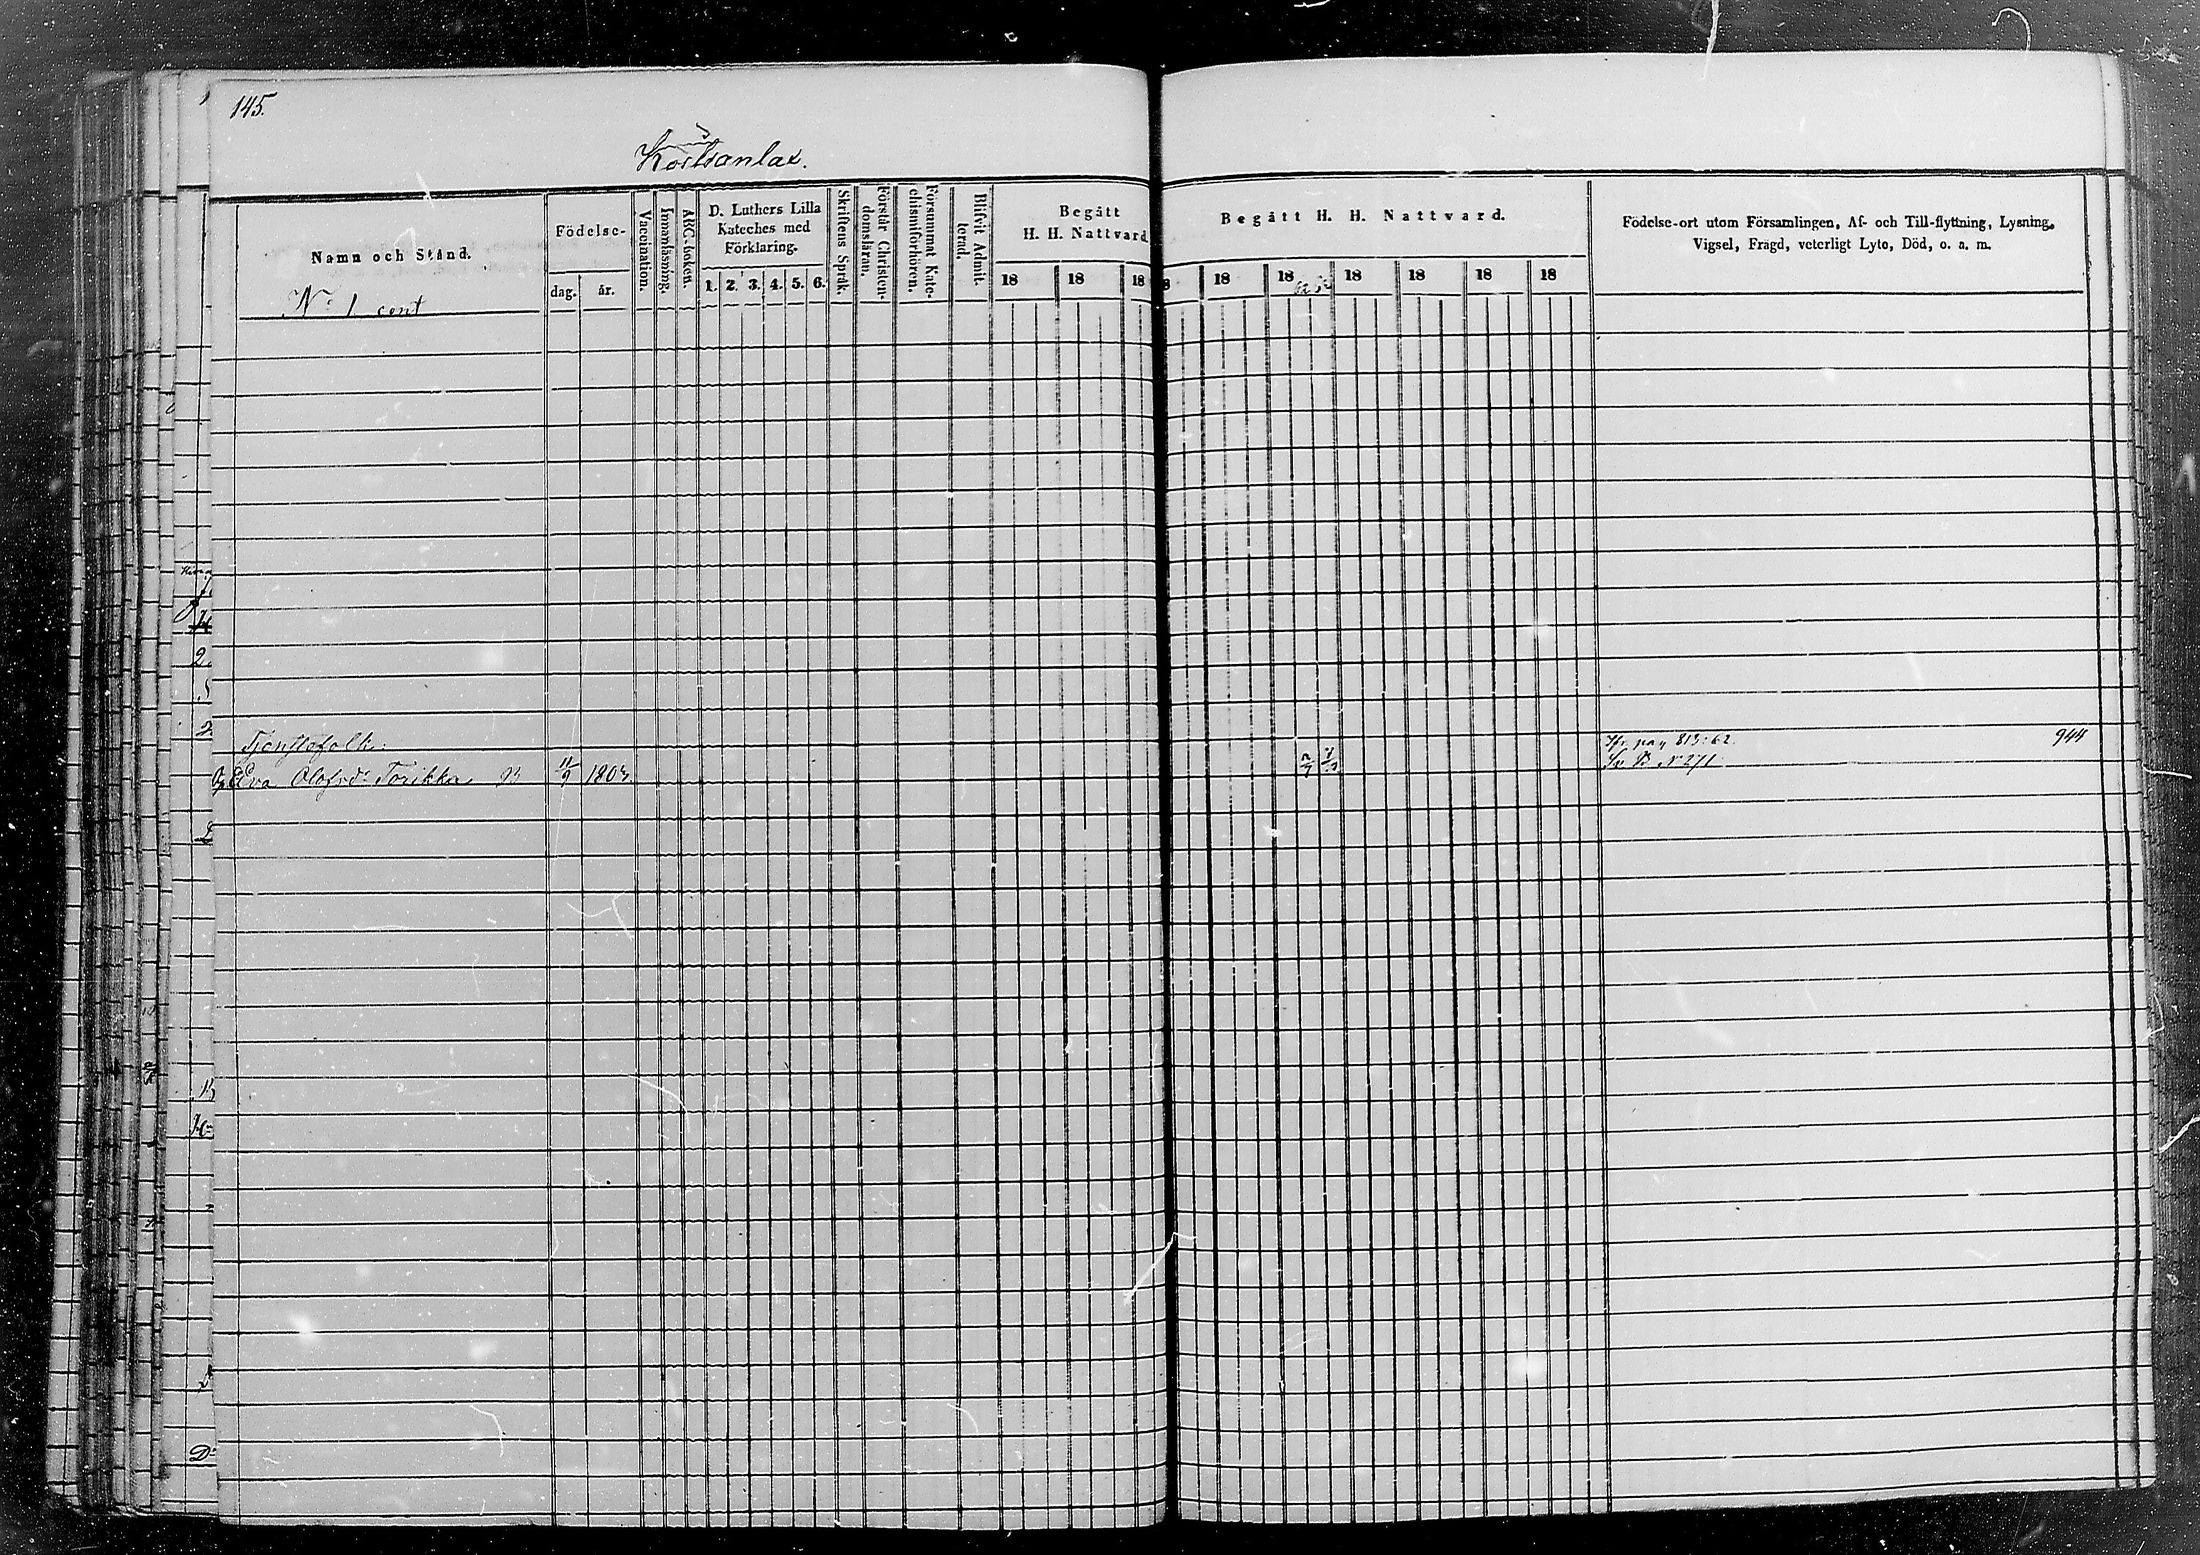 145.
Namn och Stånd.
Födelse-
dag. år.
Vaccination.
Innanläsning.
ABC-boken.
D. Luthers Lilla
Kateches med
Förklaring.
1. 2. 3. 4. 5. 6.
Skriftens Språk.
Förstår Christen-
domsläran.
Försummat Kate-
chismiförhören.
Blifvit Admit-
terad.
Begått
H. H. Nattvard
18 18 18
Begått H. H. Nattvard.
18 18 18 18 18 18
Födelse-ort utom Församlingen, Af- och Till-flyttning, Lysning,
Vigsel, Frägd, veterligt Lyte, Död, o. a. m.
No 1 cont
Tjenstefolk:
Eva Olofsd:r Torikka 11/9 1803
pag 813:62. 944
N 271